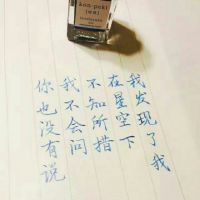 kon-peki
iroshizuku
我发现了我
在星空下
不知所措
我不会问
你也没有说